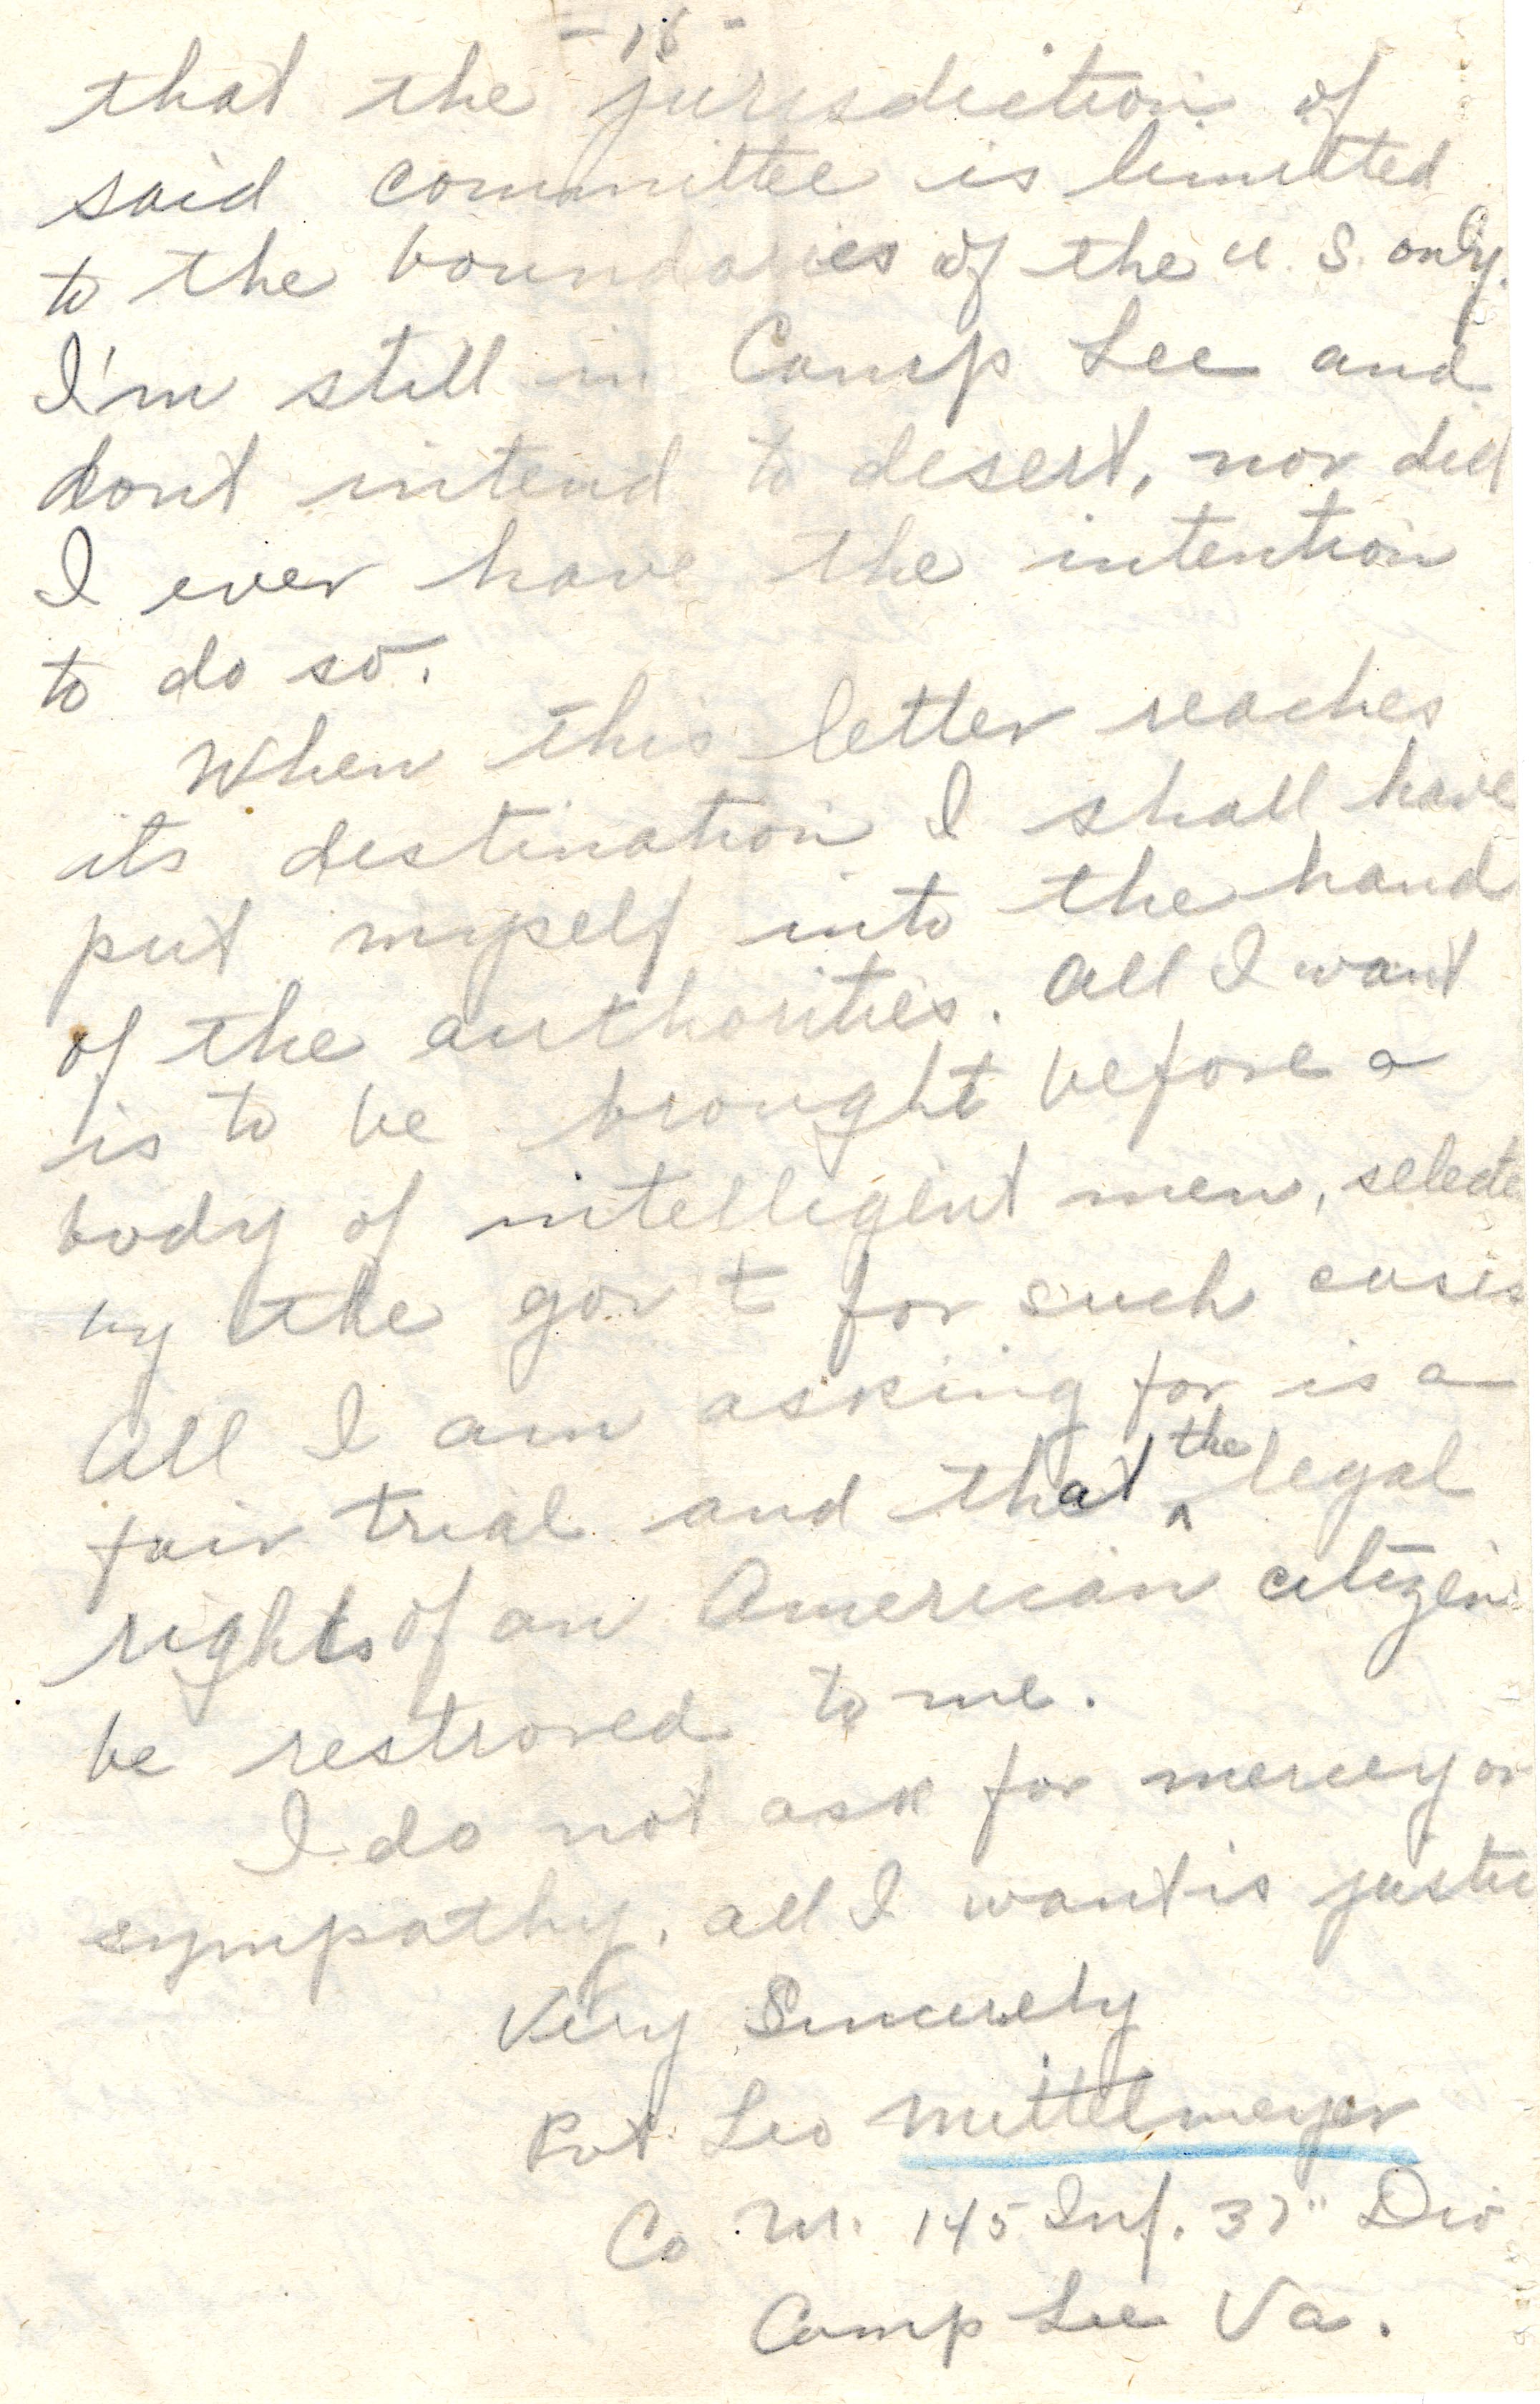 - 18 -
that the jurisdiction of
said committee is limitted
to the boundaries of the U. S. only.
I'm still in Camp Lee and
dont intend to desert, nor did
I ever have the intention
to do so.
When this letter reaches
its destination I shall have
put myself into the hand
of the authorities. All I want
is to be brought before a
body of intelligent men, selecte
by the gov't for such cases
All I am asking for is a
fair trial and that the legal
rights of an American citizen
be restroved to me.
I do not ask for mercy or
sympathy, all I want is justic
Very Sincerely
Pvt. Leo Mittelmeyer
Co M. 145 Inf. 37" Div
Camp Lee Va.